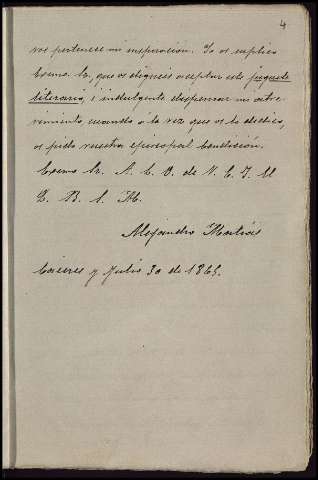 4
vos pertenece mi inspiración. Yo os suplico
Excmo Sr, que os digneis aceptar este juguete
literario, é indulgente dispensar mi atre-
vimiento cuando á la vez que os lo dedico,
os pido vuestra episcopal bendición.
Excmo Sr. A. L. P. de V. E. I. M
Q. B. S. M.
Alejandro Matías
Cáceres y Julio 30 de 1865.